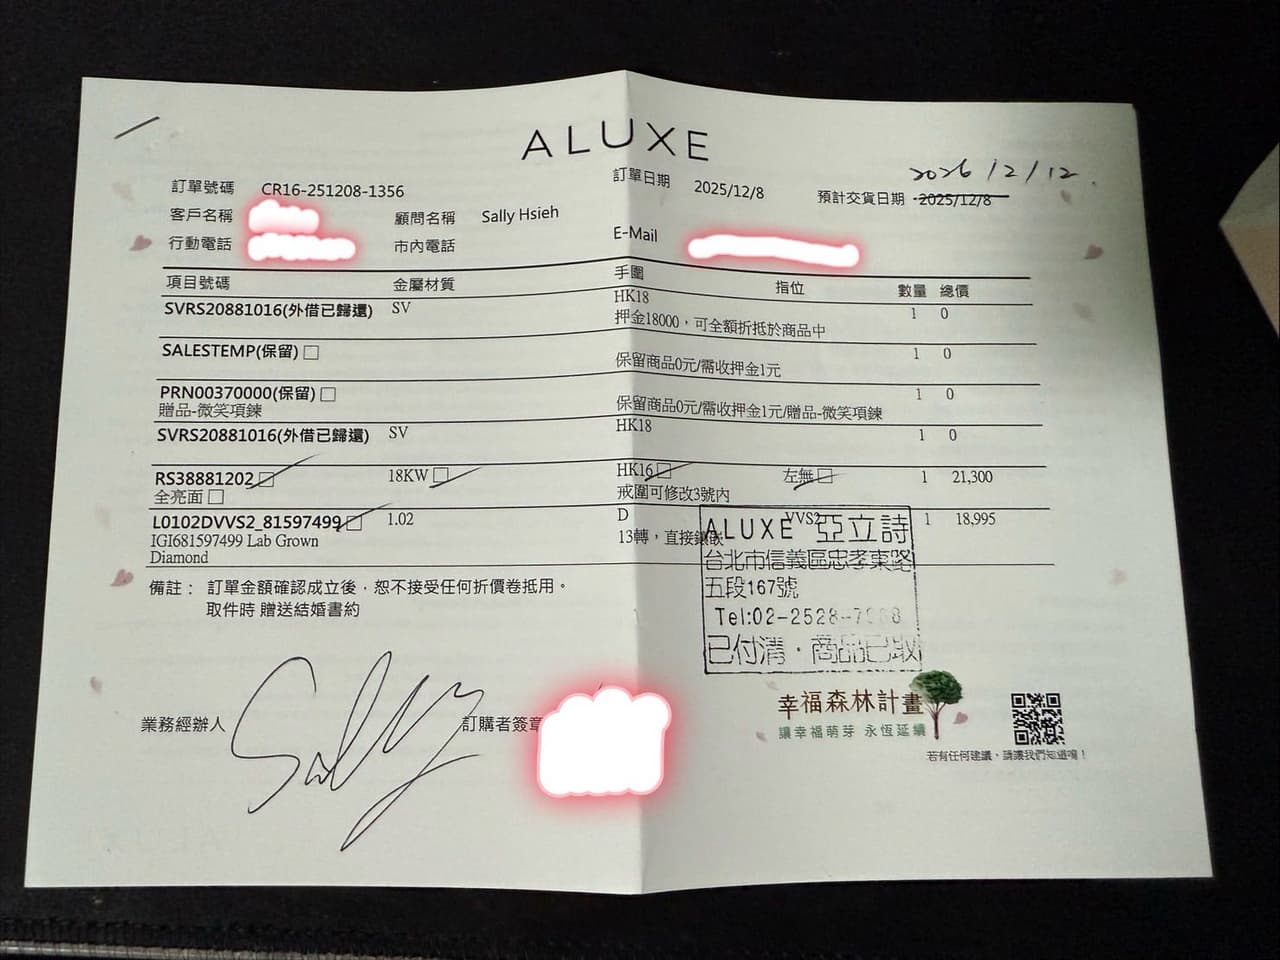 ALUXE
訂單號碼 CR16-251208-1356 訂單日期 2025/12/8 預計交貨日期 2025/12/8 2026/12/12.
客戶名稱 顧問名稱 Sally Hsieh
行動電話 市內電話 E-Mail
項目號碼 金屬材質 手圍 指位 數量 總價
SVRS20881016(外借已歸還) SV HK18 1 0
押金18000，可全額折抵於商品中
SALESTEMP(保留)□ 1 0
保留商品0元/需收押金1元
PRN00370000(保留)□ 1 0
贈品-微笑項鍊 保留商品0元/需收押金1元/贈品-微笑項鍊
SVRS20881016(外借已歸還) SV HK18 1 0
RS38881202□ 18KW□ HK16□ 左無□ 1 21,300
全亮面□ 戒圍可修改3號內
L0102DVVS2_81597499□ 1.02 D VVS2 1 18,995
IGI681597499 Lab Grown 13轉，直接鑲嵌
Diamond
ALUXE 亞立詩
台北市信義區忠孝東路
五段167號
Tel:02-2528-7
已付清・商品已取
備註： 訂單金額確認成立後，恕不接受任何折價卷抵用。
取件時 贈送結婚書約
業務經辦人 Sally 訂購者簽章
幸福森林計畫
讓幸福萌芽 永恆延續
若有任何建議，請讓我們知道唷！